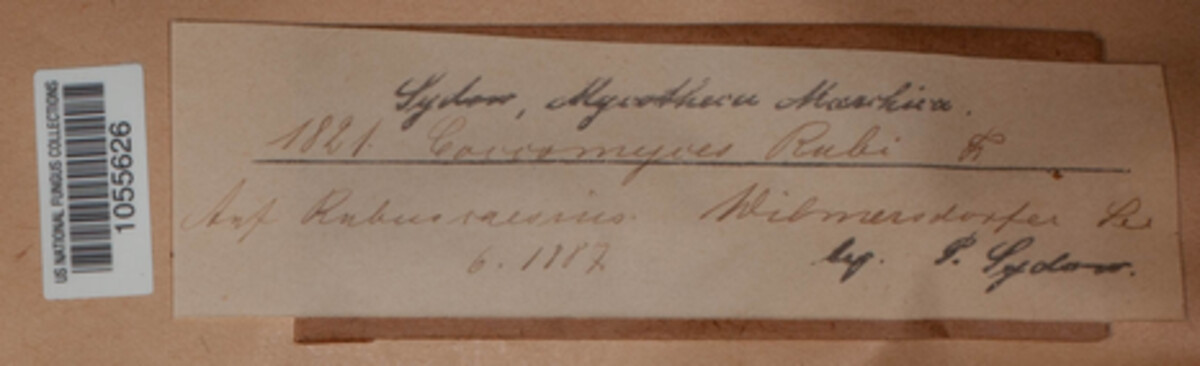 US NATIONAL FUNGUS COLLECTIONS
1055626
Sydow, Mycotheca Marchica.
1821. Coccomyces Rubi
Auf Rubus caesius. Wilmersdorfer
6. 1887.
leg. P. Sydow.